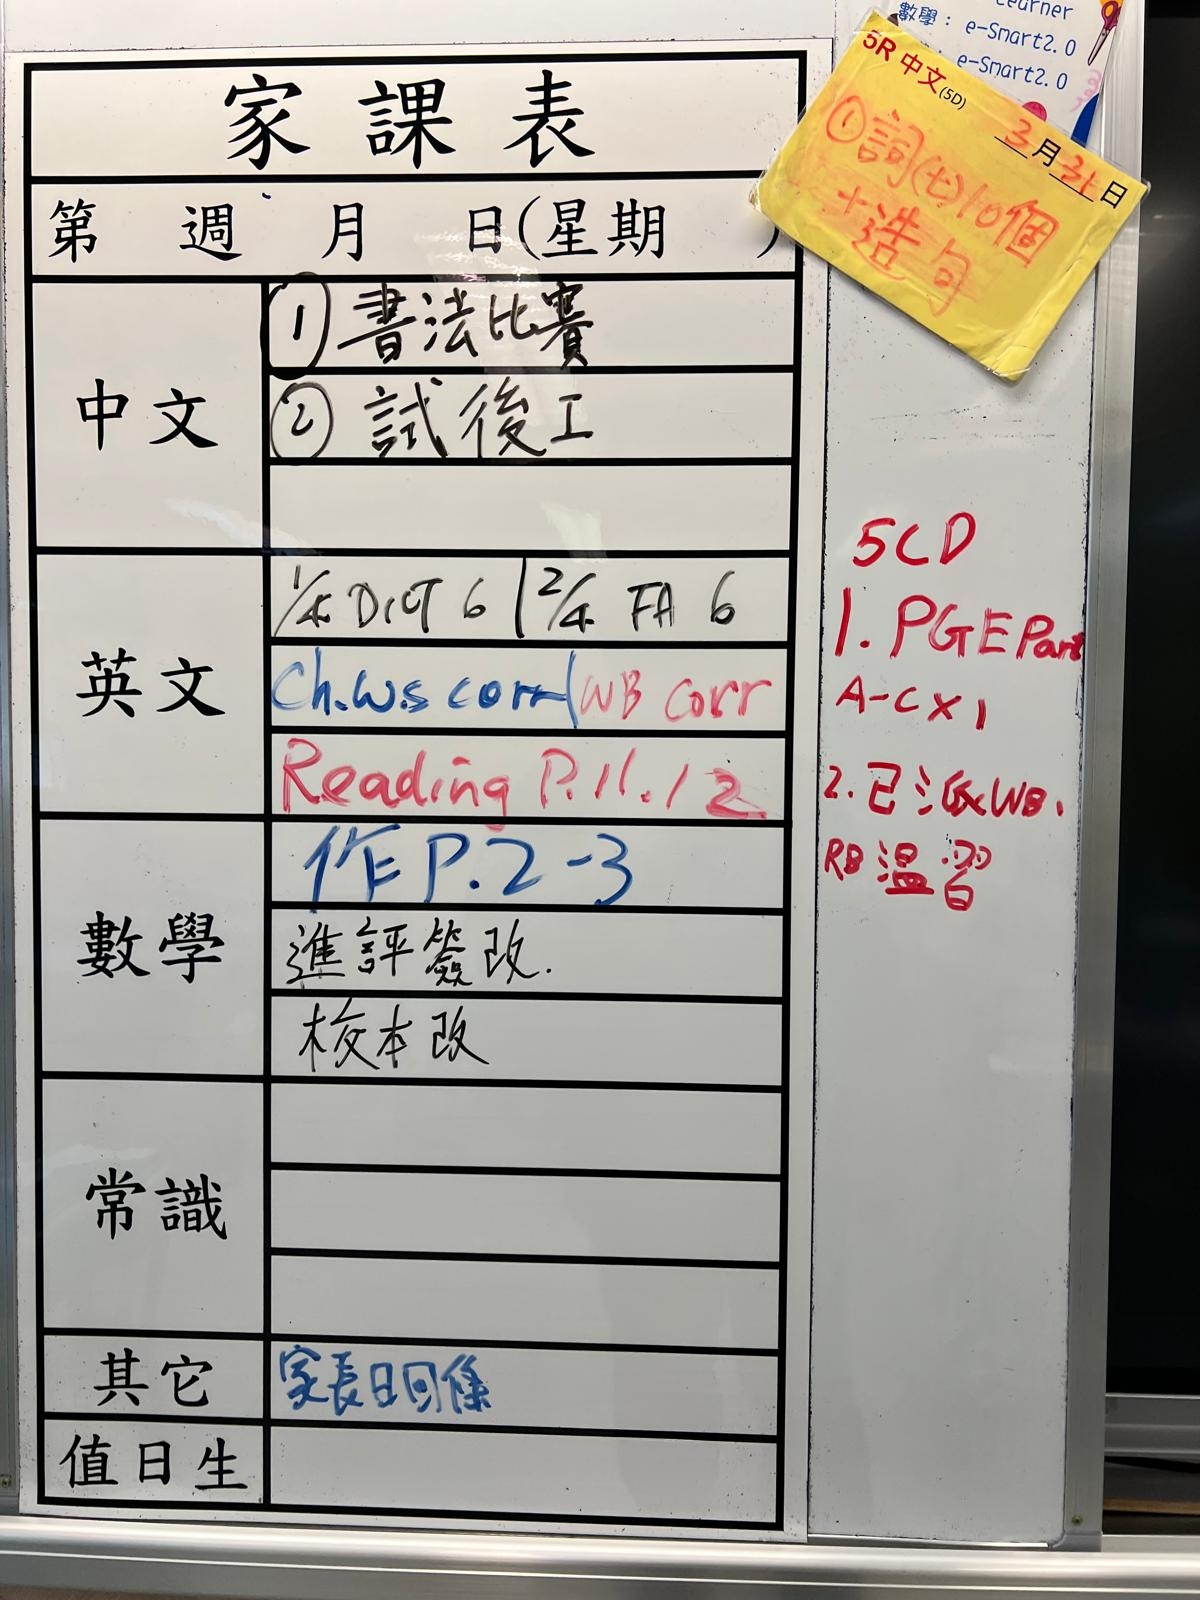 家課表
第 週 月 日(星期 )
中文
① 書法比賽
② 試後工
英文
1/4 Dict 6 | 2/4 FA 6
Ch.W.s corr | WB corr
Reading P.11.12.
數學
作 P.2-3
進評簽改.
校本改
常識
其它
家長日回條
值日生
Learner
數學： e-Smart2.0
e-Smart2.0
5R 中文(5D)
3月31日
①詞(七)10個
+造句
5CD
1. PGE Part
A-C x 1
2. 已派WB.
RB 溫習